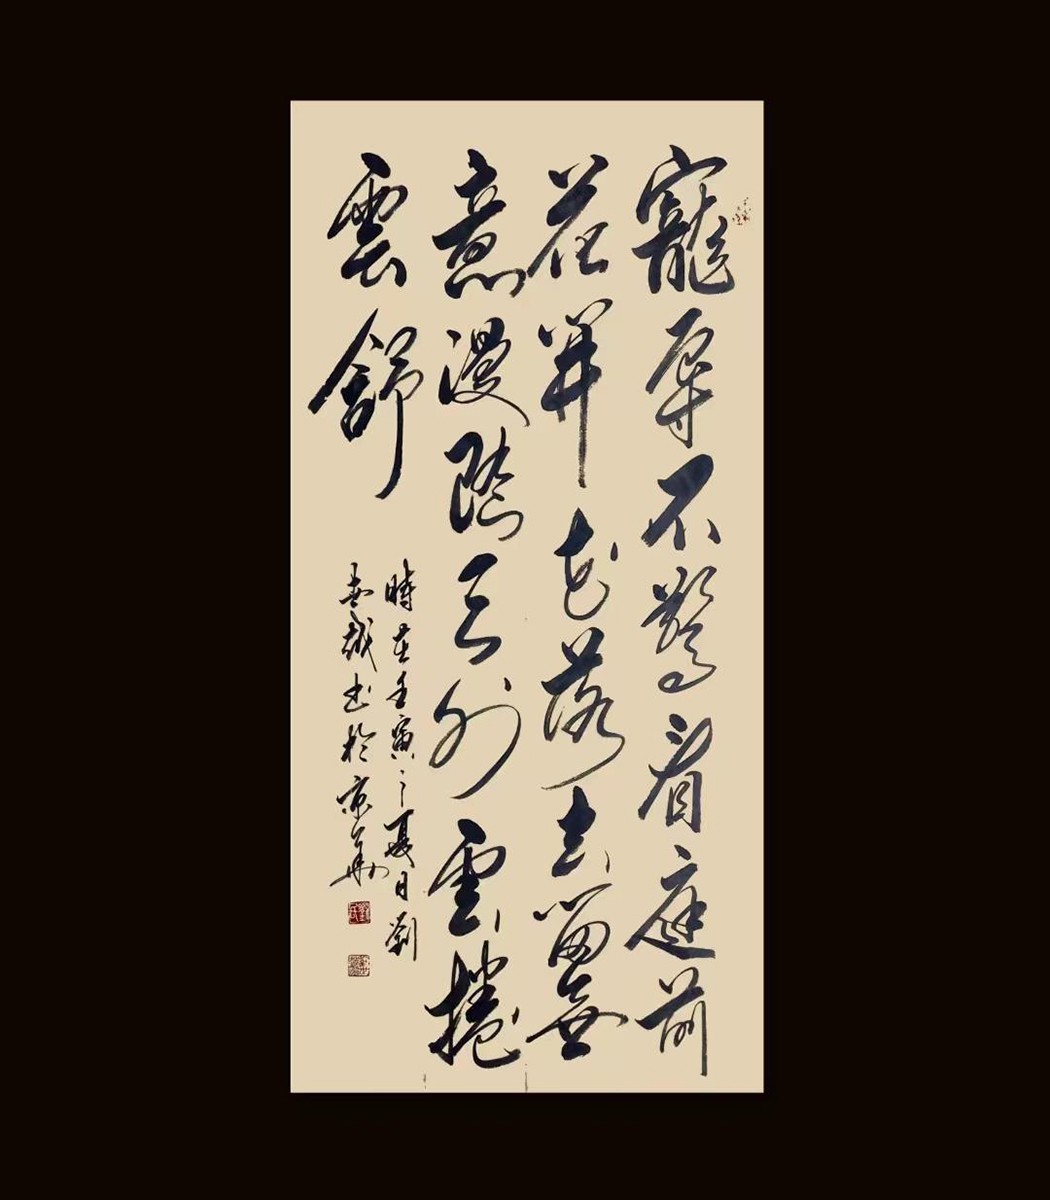 寵辱不驚看庭前
花開花落去留無
意漫隨天外雲捲
雲舒
時在壬寅之夏日劉
春越書於京華